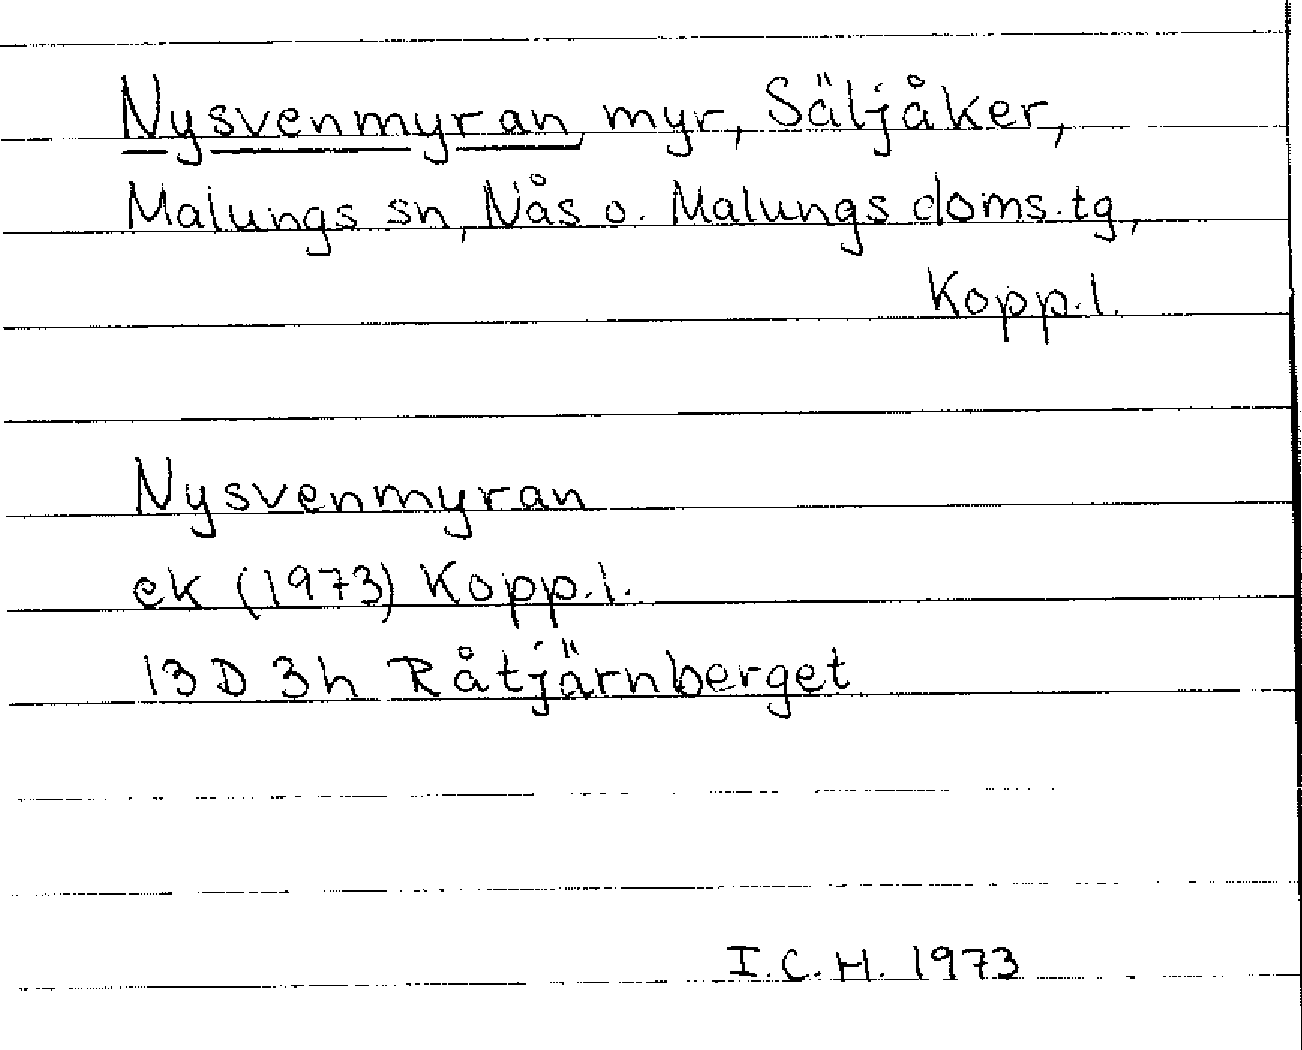 Nysvenmyran, myr, Säljåker,
Malungs sn, Nås o. Malungs doms.tg,
Kopp.l.
Nysvenmyran
ek (1973) Kopp.l.
13 D 3h Råtjärnberget
I.C.H. 1973